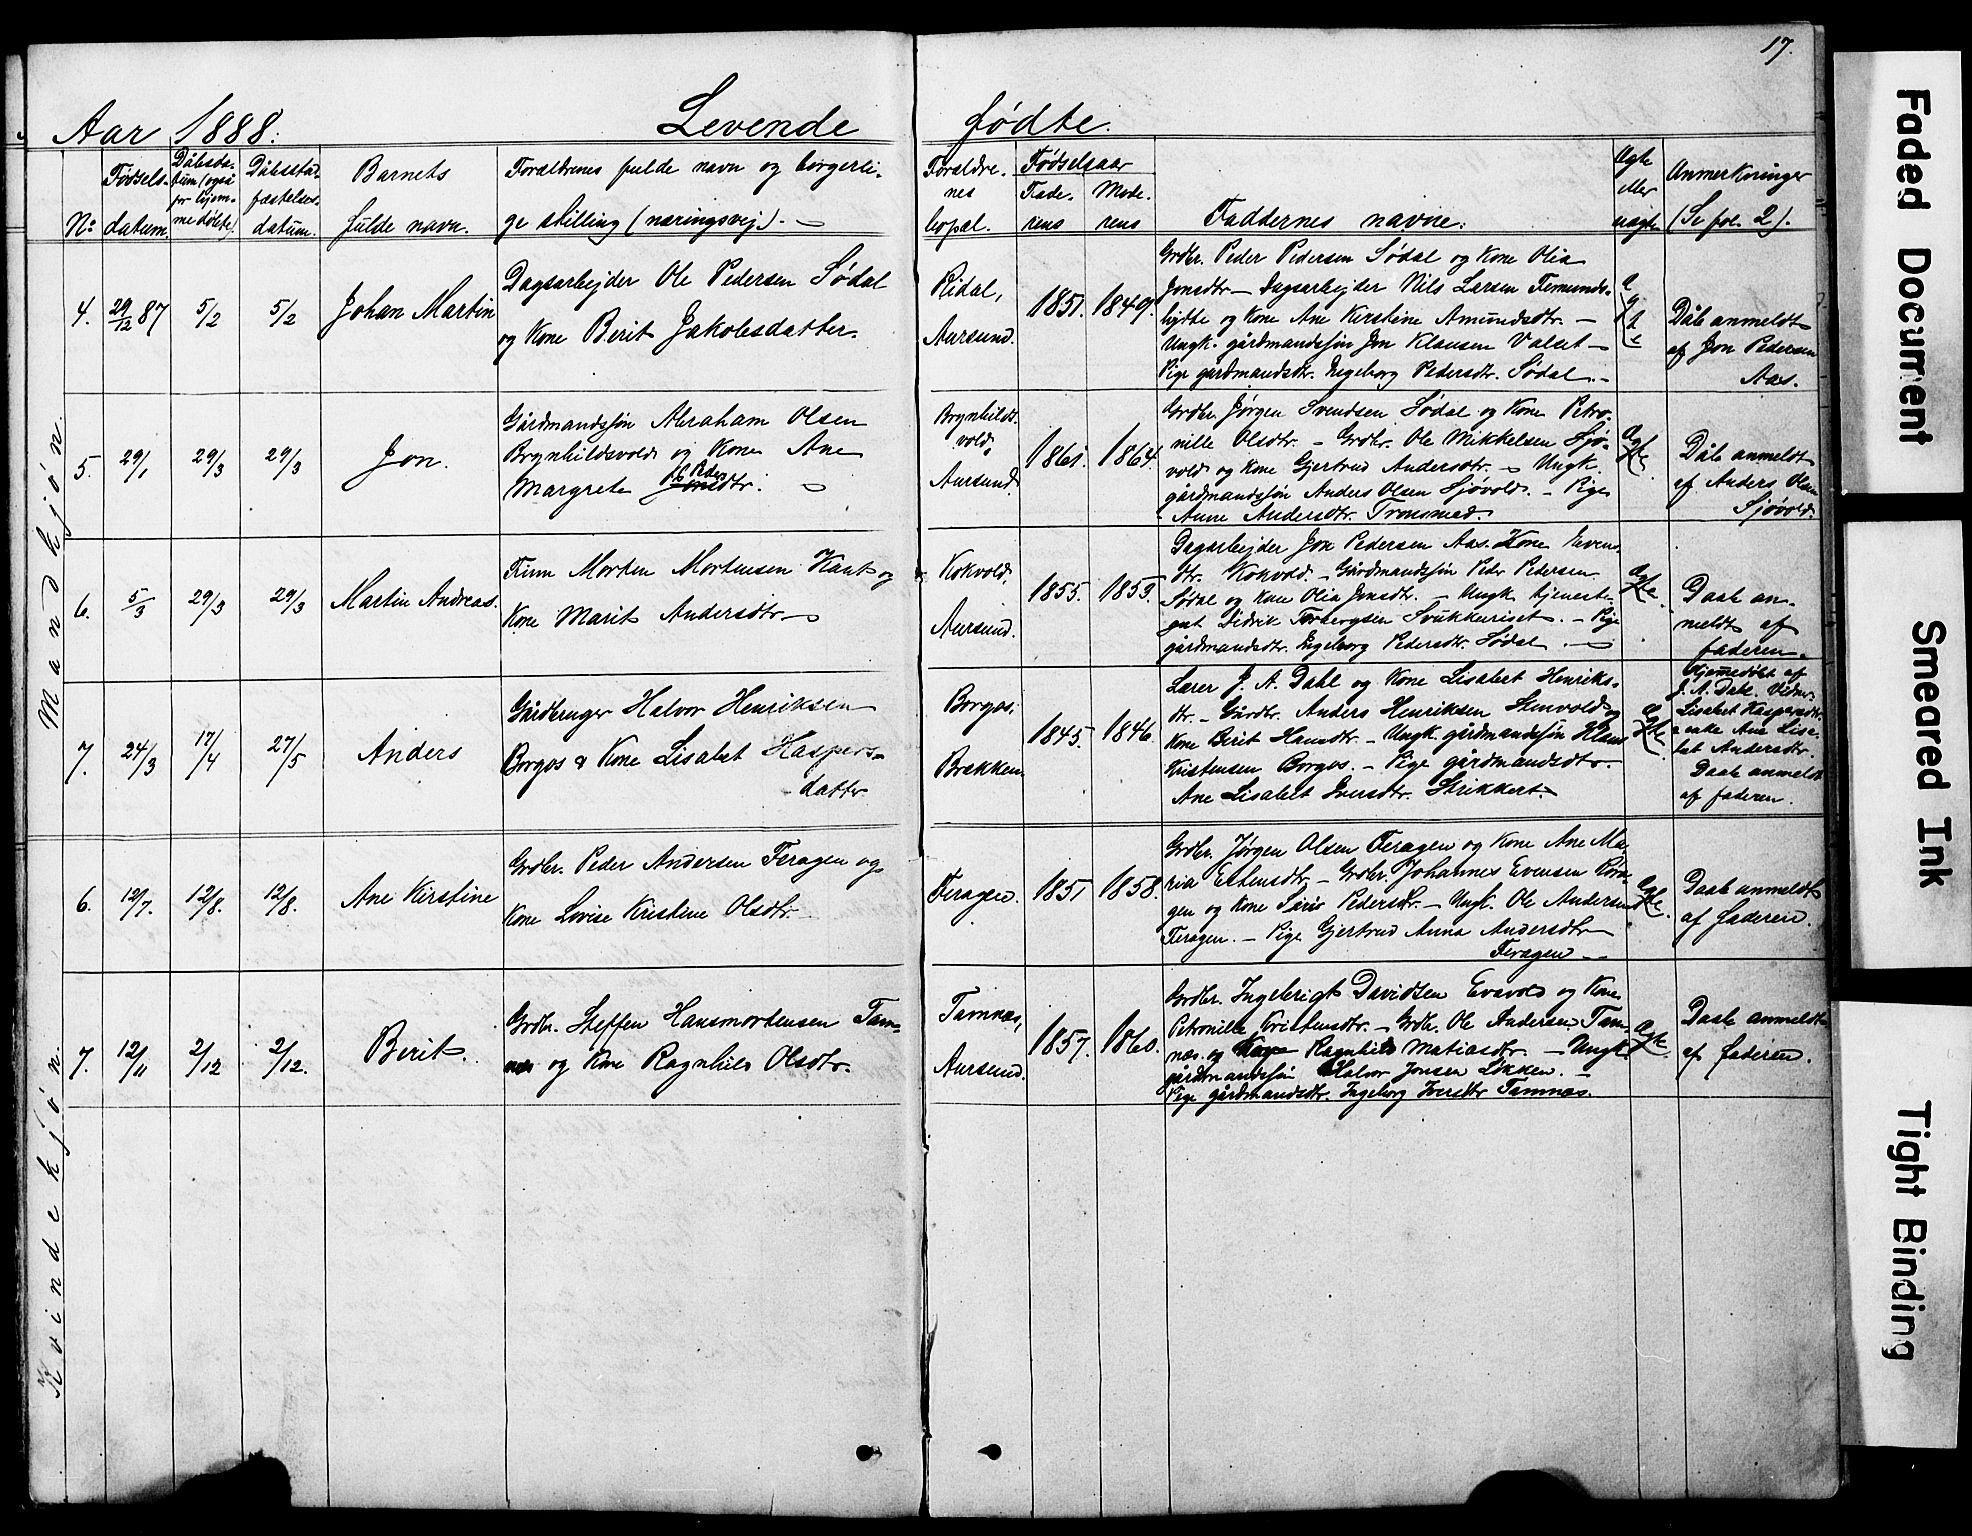 17.
Aar 1888. Levende fødte.
No
Fødsels-
datum.
Dåbsda-
tum (også
for hjem-
medøbte).
Dåbsstad-
fæstelses-
datum.
Barnets
fulde navn.
Forældrenes fulde navn og borgerli-
ge stilling (næringsvej). —
Forældre-
nes
bopæl.
Fødselsaar
Fade-
rens
Mode-
rens
Faddernes navne.
Ægte
eller
uægte
Anmerkninger
(Se fol. 2).
Mandkjøn.
4. 29/12 87 5/2 5/2 Johan Martin
Dagsarbejder Ole Pedersen Sødal
og Kone Berit Jakobsdatter.
Ridal,
Aursund.
1851. 1849.
Grdbr. Peder Pedersen Sødal og Kone Olia
Jonsdtr — Dagsarbejder Nils Larsen Femunds-
hytte og Kone Ane Kirstine Amundsdtr. —
Ungk. gårdmandssøn Jon Klausen Valset —
Pige gårdmandsdtr. Ingeborg Pedersdtr. Sødal. —
Ægte
Dåb anmeldt
af Jon Pedersen
Aas.
5. 29/1 29/3 29/3 Jon.
Gårdmandssøn Abraham Olsen
Brynhildsvold og Kone Ane
Margrete Jonsdtr. —
Brynhilds-
vold,
Aursund.
1861. 1864.
Grdbr. Jørgen Svendsen Sødal og Kone Petro-
nille Olsdtr. — Grdbr. Ole Mikkelsen Sjø-
vold og Kone Gjertrud Andersdtr. — Ungk.
gårdmandssøn Anders Olsen Sjøvold. — Pige
Anne Andersdtr. Tronsmed.
Ægte.
Dåb anmeldt
af Anders Olsen
Sjøvold.
6. 5/3 29/3 29/3 Martin Andreas.
Morten Mortensen Kant og
Kone Marit Andersdtr. —
Kokvold,
Aursund.
1855. 1853.
Dagarbejder Jon Pedersen Aas. Kone Evens-
dtr. Kokvold. — Gårdmandssøn Peder Pedersen
Sødal og Kone Olia Jonsdtr. — Ungk. tjeneste-
gut Didrik Torbergsen Svukkuriset. — Pige
gårdmandsdtr. Ingeborg Pedersdtr. Sødal. —
Ægte.
Daab an-
meldt af
faderen.
7. 24/3 17/4 27/5 Anders
Gårdbruger Halvor Henriksen
Borgos & Kone Lisabet Kaspers-
datter.
Borgos,
Brekken.
1845. 1846.
Lærer J. A. Dahl og Kone Lisabet Henriks-
dtr. — Gårdbr. Anders Henriksen Stenvold og
Kone Berit Hansdtr — Ungk. gårdmandssøn Klaus
Kristensen Borgos. — Pige gårdmandsdtr.
Ane Lisabet Iversdtr. Strikkert.
Ægte.
Hjemmedøbt af
J. A. Dahl. Vidner
Lisabet Kaspersdtr.
enke Ane Lisa-
bet Andersdtr.
Daab anmeldt
af faderen.
Kvindekjøn.
6. 12/7. 12/8. 12/8. Ane Kirstine
Grdbr. Peder Andersen Feragen og
Kone Lovise Kristine Olsdtr.
Feragen.
1851 1858.
Grdbr. Jørgen Olsen Feragen og Kone Ane Ma-
ria Estensdtr — Grdbr. Johannes Evensen
gen og Kone Siri Pedersdtr. — Ungk. Ole Andersen
Feragen. — Pige Gjertrud Anna Andersdtr
Feragen. —
Ægte.
Daab anmeldt
af faderen.
7. 12/11 2/12 2/12. Berit.
Grdbr. Steffen Hansmortensen Tam-
nes og Kone Ragnhild Olsdtr.
Tamnes,
Aursund.
1857. 1860.
Grdbr. Ingebrigt Davidsen Evavold og Kone
Petronille Kristensdtr. — Grdbr. Ole Andersen Tam-
næs og Kone Ragnhild Matiasdtr. — Ungk.
gårdmandssøn Halvor Jonsen Løkken. —
Pige gårdmandsdtr. Ingeborg Iversdtr Tamnæs.
Ægte.
Daab anmeldt
af faderen.
Faded Document
Smeared Ink
Tight Binding